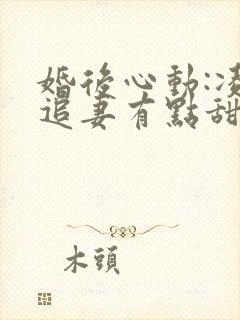 婚後心動:凌
追妻有點甜
木頭